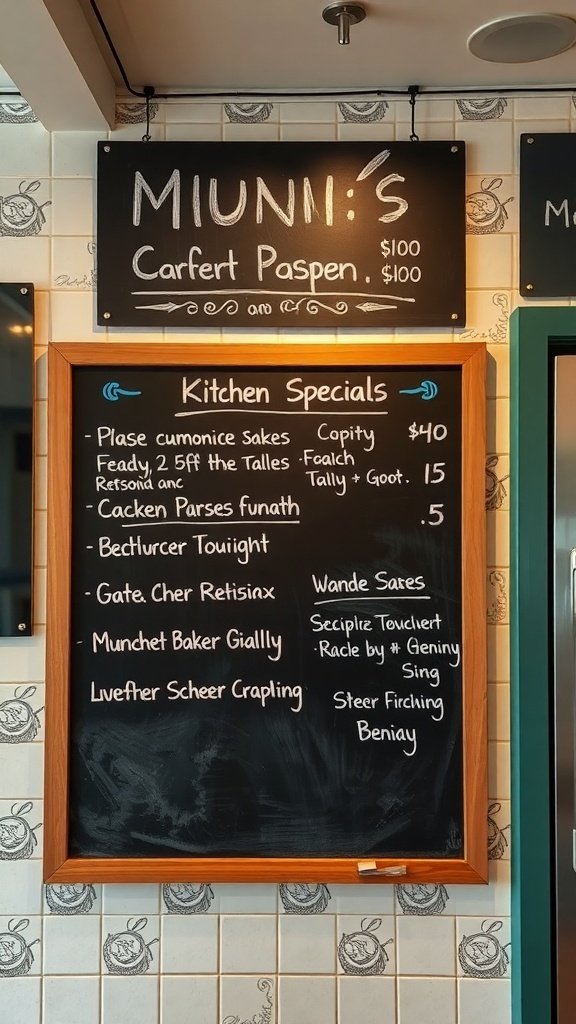 MIUNII:'S
Carfert Paspen. $100
$100
ano
Kitchen Specials
- Plase cumonice Sakes Copity $40
Feady, 2 5ff the Talles · Foalch
Retsond anc Tally + Goot. 15
- Cacken Parses funath .5
- Bectlurcer Touiight
- Gate. Cher Retisiax
- Munchet Baker Giallly
Livefher Scheer Crapling
Wande Sares
Seciplre Teuclert
· Racle by # Geniny
Sing
Steer Firclning
Beniay
M